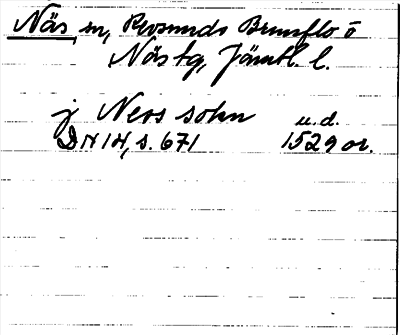 Näs sn, Revsunds Brunflo o
Näs tg, Jämtl. l.
j Ness sokn u.d.
DN 14, s. 671 1529 or.